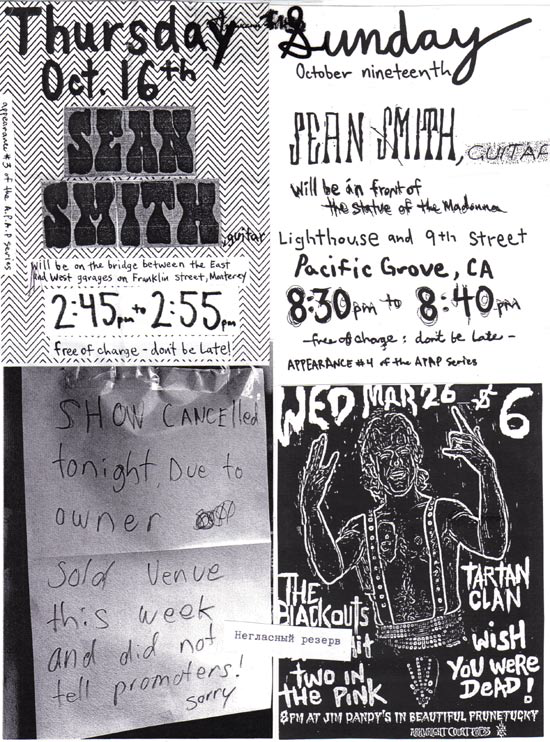 Thursday
Oct. 16th
appearance #3 of the A.P.A.P series
SEAN
SMITH
, guitar
will be on the bridge between the East
and West garages on Franklin street, Monterey
2:45pm to 2:55pm
free of charge - don't be Late!
Sunday
October nineteenth
SEAN SMITH, GUITAR
Will be in front of
the statue of the Madonna
Lighthouse and 9th Street
Pacific Grove, CA
8:30pm to 8:40pm
-free of charge: don't be late-
APPEARANCE #4 of the APAP Series
SHOW CANCElled
tonight, Due to
owner
Sold Venue
this week
and did not
tell promoters!
sorry
Негласный резерв
WED MAR 26 $6
THE
BLACKOUTS
TWO IN
THE PINK
TARTAN
CLAN
WISH
YOU WERE
DEAD!
8PM AT JIM DANDY'S IN BEAUTIFUL PRUNETUCKY